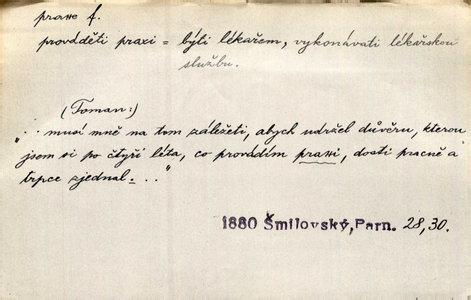 praxe f.
prováděti praxi = býti lékařem, vykonávati lékařskou
službu.
(Toman:)
„.. musí mně na tom záležeti, abych udržel důvěru, kterou
jsem si po čtyři léta, co provádím praxi, dosti pracně a
trpce zjednal. ..."
1880 Šmilovský, Parn. 28, 30.